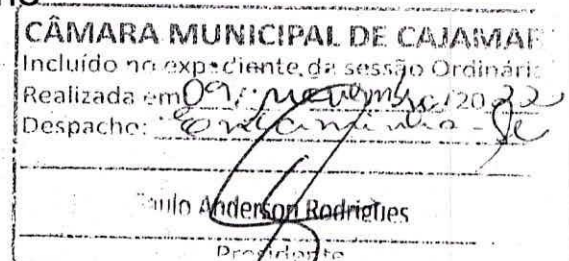 CÂMARA MUNICIPAL DE CAJAMAR
Incluído no expediente da sessão Ordinári
Realizada em 09/novembro/2022
Despacho: Encaminha-se
Paulo Anderson Rodrigues
Presidente